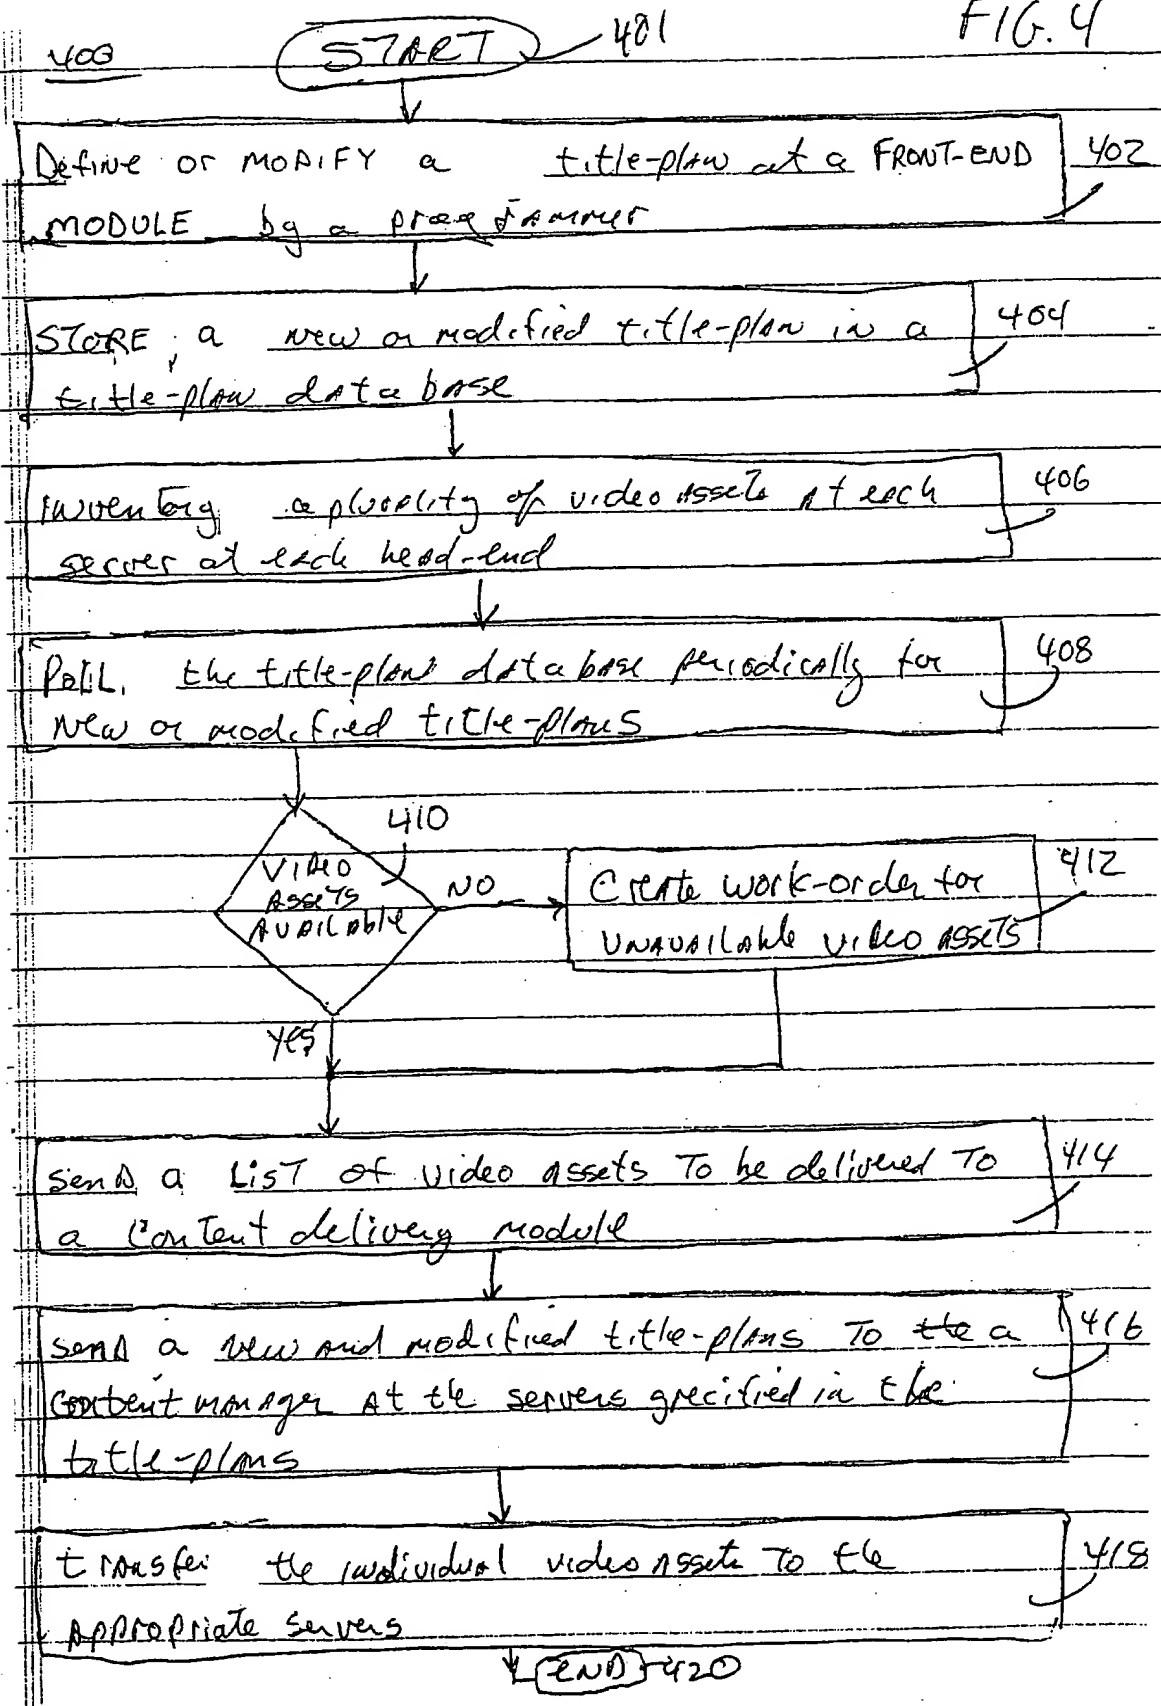 400 START 401 FIG. 4
Define or MODIFY a title-plan at a FRONT-END 402
MODULE by a programmer
STORE a new or modified title-plan in a 404
title-plan database
inventory a plurality of video assets at each 406
server at each head-end
Poll the title-plans database periodically for 408
new or modified title-plans
410
VIDEO
ASSETS
AVAILABLE
NO
Create work-order for 412
UNAVAILABLE VIDEO ASSETS
YES
send a LIST of video assets To be delivered To 414
a Content delivery module
send a new and modified title-plans To the a 416
content manager at the servers specified in the
title-plans
transfer the individual video assets To the 418
Appropriate servers
END 420